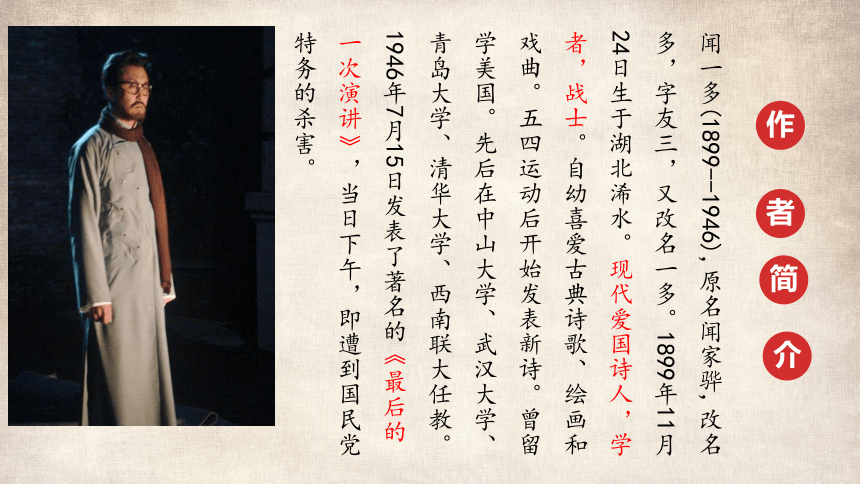 作者简介
闻一多(1899--1946),原名闻家骅,改名
多,字友三,又改名一多。1899年11月
24日生于湖北浠水。现代爱国诗人,学
者,战士。自幼喜爱古典诗歌、绘画和
戏曲。五四运动后开始发表新诗。曾留
学美国。先后在中山大学、武汉大学、
青岛大学、清华大学、西南联大任教。
1946年7月15日发表了著名的《最后的
一次演讲》,当日下午,即遭到国民党
特务的杀害。